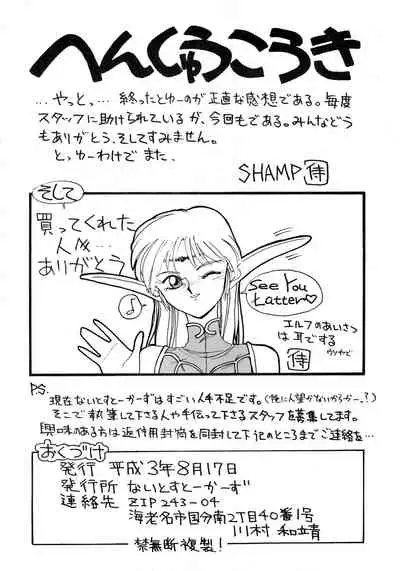 へんしゅうこうき
...やっと,... 終ったとゆーのが正直な感想である。毎度
スタッフに助けられているが、今回もである。みんなどう
もありがとう、そしてすみません。
とっゆーわけで また.
SHAMP 侍
そして
買ってくれた
人々...
ありがとう
♪
See You
Latter♡
エルフのあいさつ
は耳でする
ウソやど
侍
P.S.
現在ないとすとーかーずはすごい人手不足です。(俺に人望がないからかー..?)
そこで執筆して下さる人や手伝って下さるスタッフを募集してます。
興味のある方は返信用封筒を同封して下記のところまでご連絡を...
おくづけ
発行 平成3年8月17日
発行所 ないとすとーかーず
連絡先 ZIP 243-04
海老名市国分南2丁目40番1号
川村
禁無断複製!